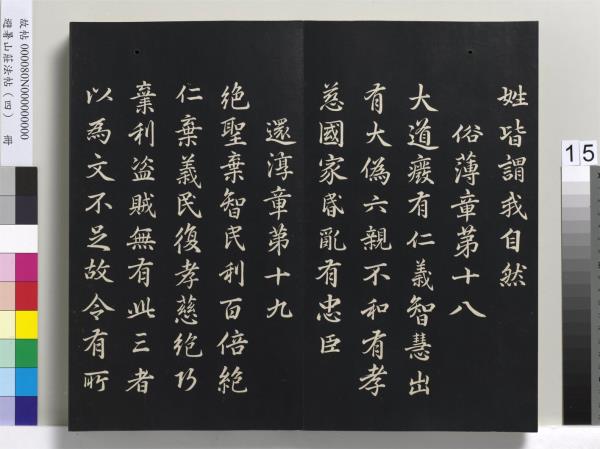 姓皆謂我自然
俗薄章第十八
大道癈有仁義智慧出
有大偽六親不和有孝
慈國家昬亂有忠臣
還淳章第十九
絶聖棄智民利百倍絶
仁棄義民復孝慈絶巧
棄利盗賊無有此三者
以為文不足故令有所
故帖 000080N000000000
避暑山莊法帖(四) 冊
15